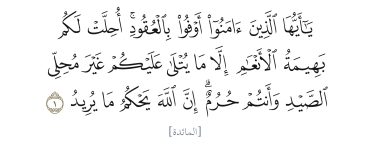 يَـٰٓأَيُّهَا ٱلَّذِينَ ءَامَنُوٓا۟ أَوْفُوا۟ بِٱلْعُقُودِ ۚ أُحِلَّتْ لَكُم
بَهِيمَةُ ٱلْأَنْعَـٰمِ إِلَّا مَا يُتْلَىٰ عَلَيْكُمْ غَيْرَ مُحِلِّى
ٱلصَّيْدِ وَأَنتُمْ حُرُمٌ ۗ إِنَّ ٱللَّهَ يَحْكُمُ مَا يُرِيدُ ۝١
[المائدة]